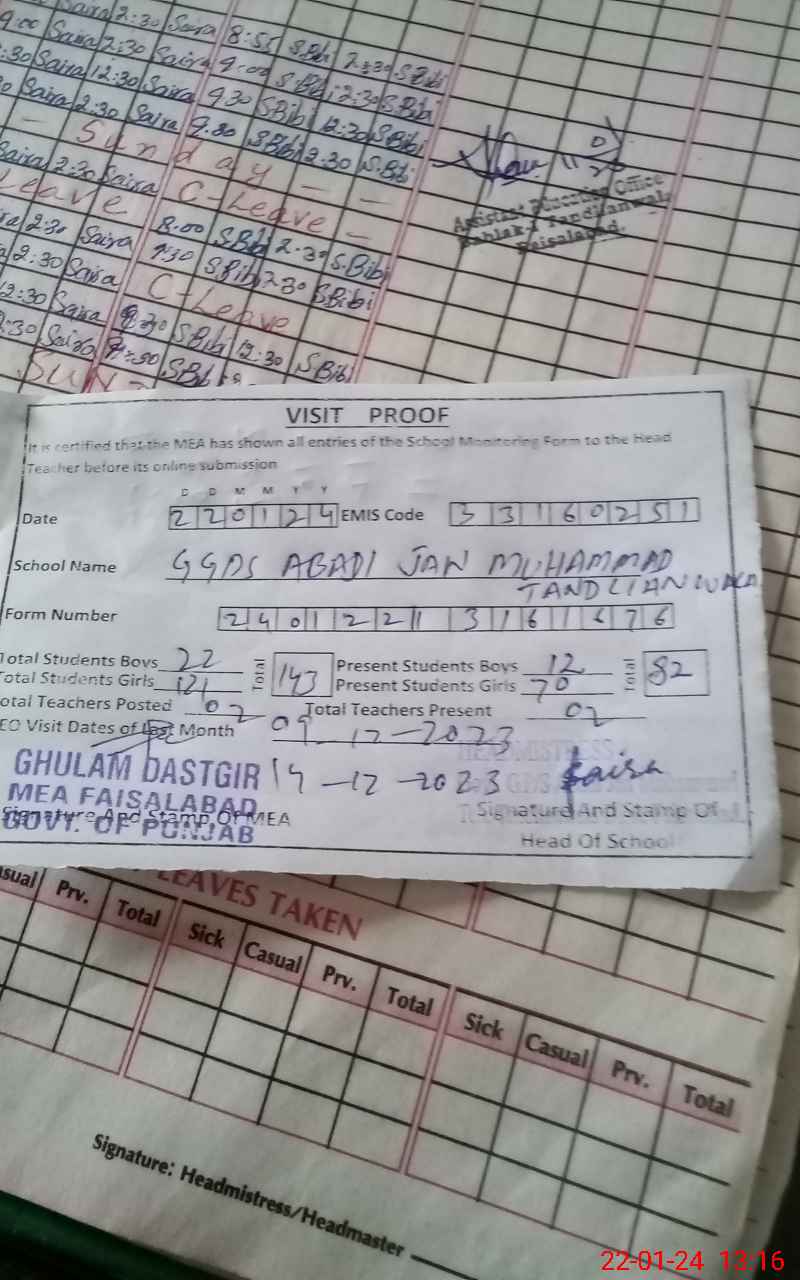 Saira 2:30 Saira 8:55 SBibi 2:30 SBibi
9:00 Saira 2:30 Saira 9:00 SBibi 2:30 SBibi
:30 Saira 12:30 Saira 9:30 SBibi 12:30 SBibi
Saira 2:30 Saira 9:30 SBibi 2:30 S.Bibi
— Sunday — —
Saira 2:30 Saira C-Leave —
Leave 8:00 SBibi 2:30 S.Bibi
2:30 Saira 9:30 SBibi 2:30 SBibi
2:30 Saira C-Leave
12:30 Saira 8:30 SBibi 12:30 SBibi
:30 Saira SBibi
SUN
Assistant Education Officer
Tandlianwala
Faisalabad.
VISIT PROOF
It is certified that the MEA has shown all entries of the School Monitoring Form to the Head
Teacher before its online submission
D D M M Y Y
Date 220124 EMIS Code 33160251
School Name GGPS ABADI JAN MUHAMMAD
TANDLIANWALA
Form Number 2401221 3161676
Total Students Boys 22 Total 143 Present Students Boys 12 Total 82
Total Students Girls 121 Present Students Girls 70
otal Teachers Posted 02 Total Teachers Present 02
EO Visit Dates of Last Month 09-12-2023
HEADMISTRESS
GHULAM DASTGIR 14-12-2023
MEA FAISALABAD
Signature And Stamp Of MEA Signature And Stamp Of
GOVT. OF PUNJAB
Head Of School
LEAVES TAKEN
sual Prv. Total Sick Casual Prv. Total Sick Casual Prv. Total
Signature: Headmistress/Headmaster
22-01-24 13:16